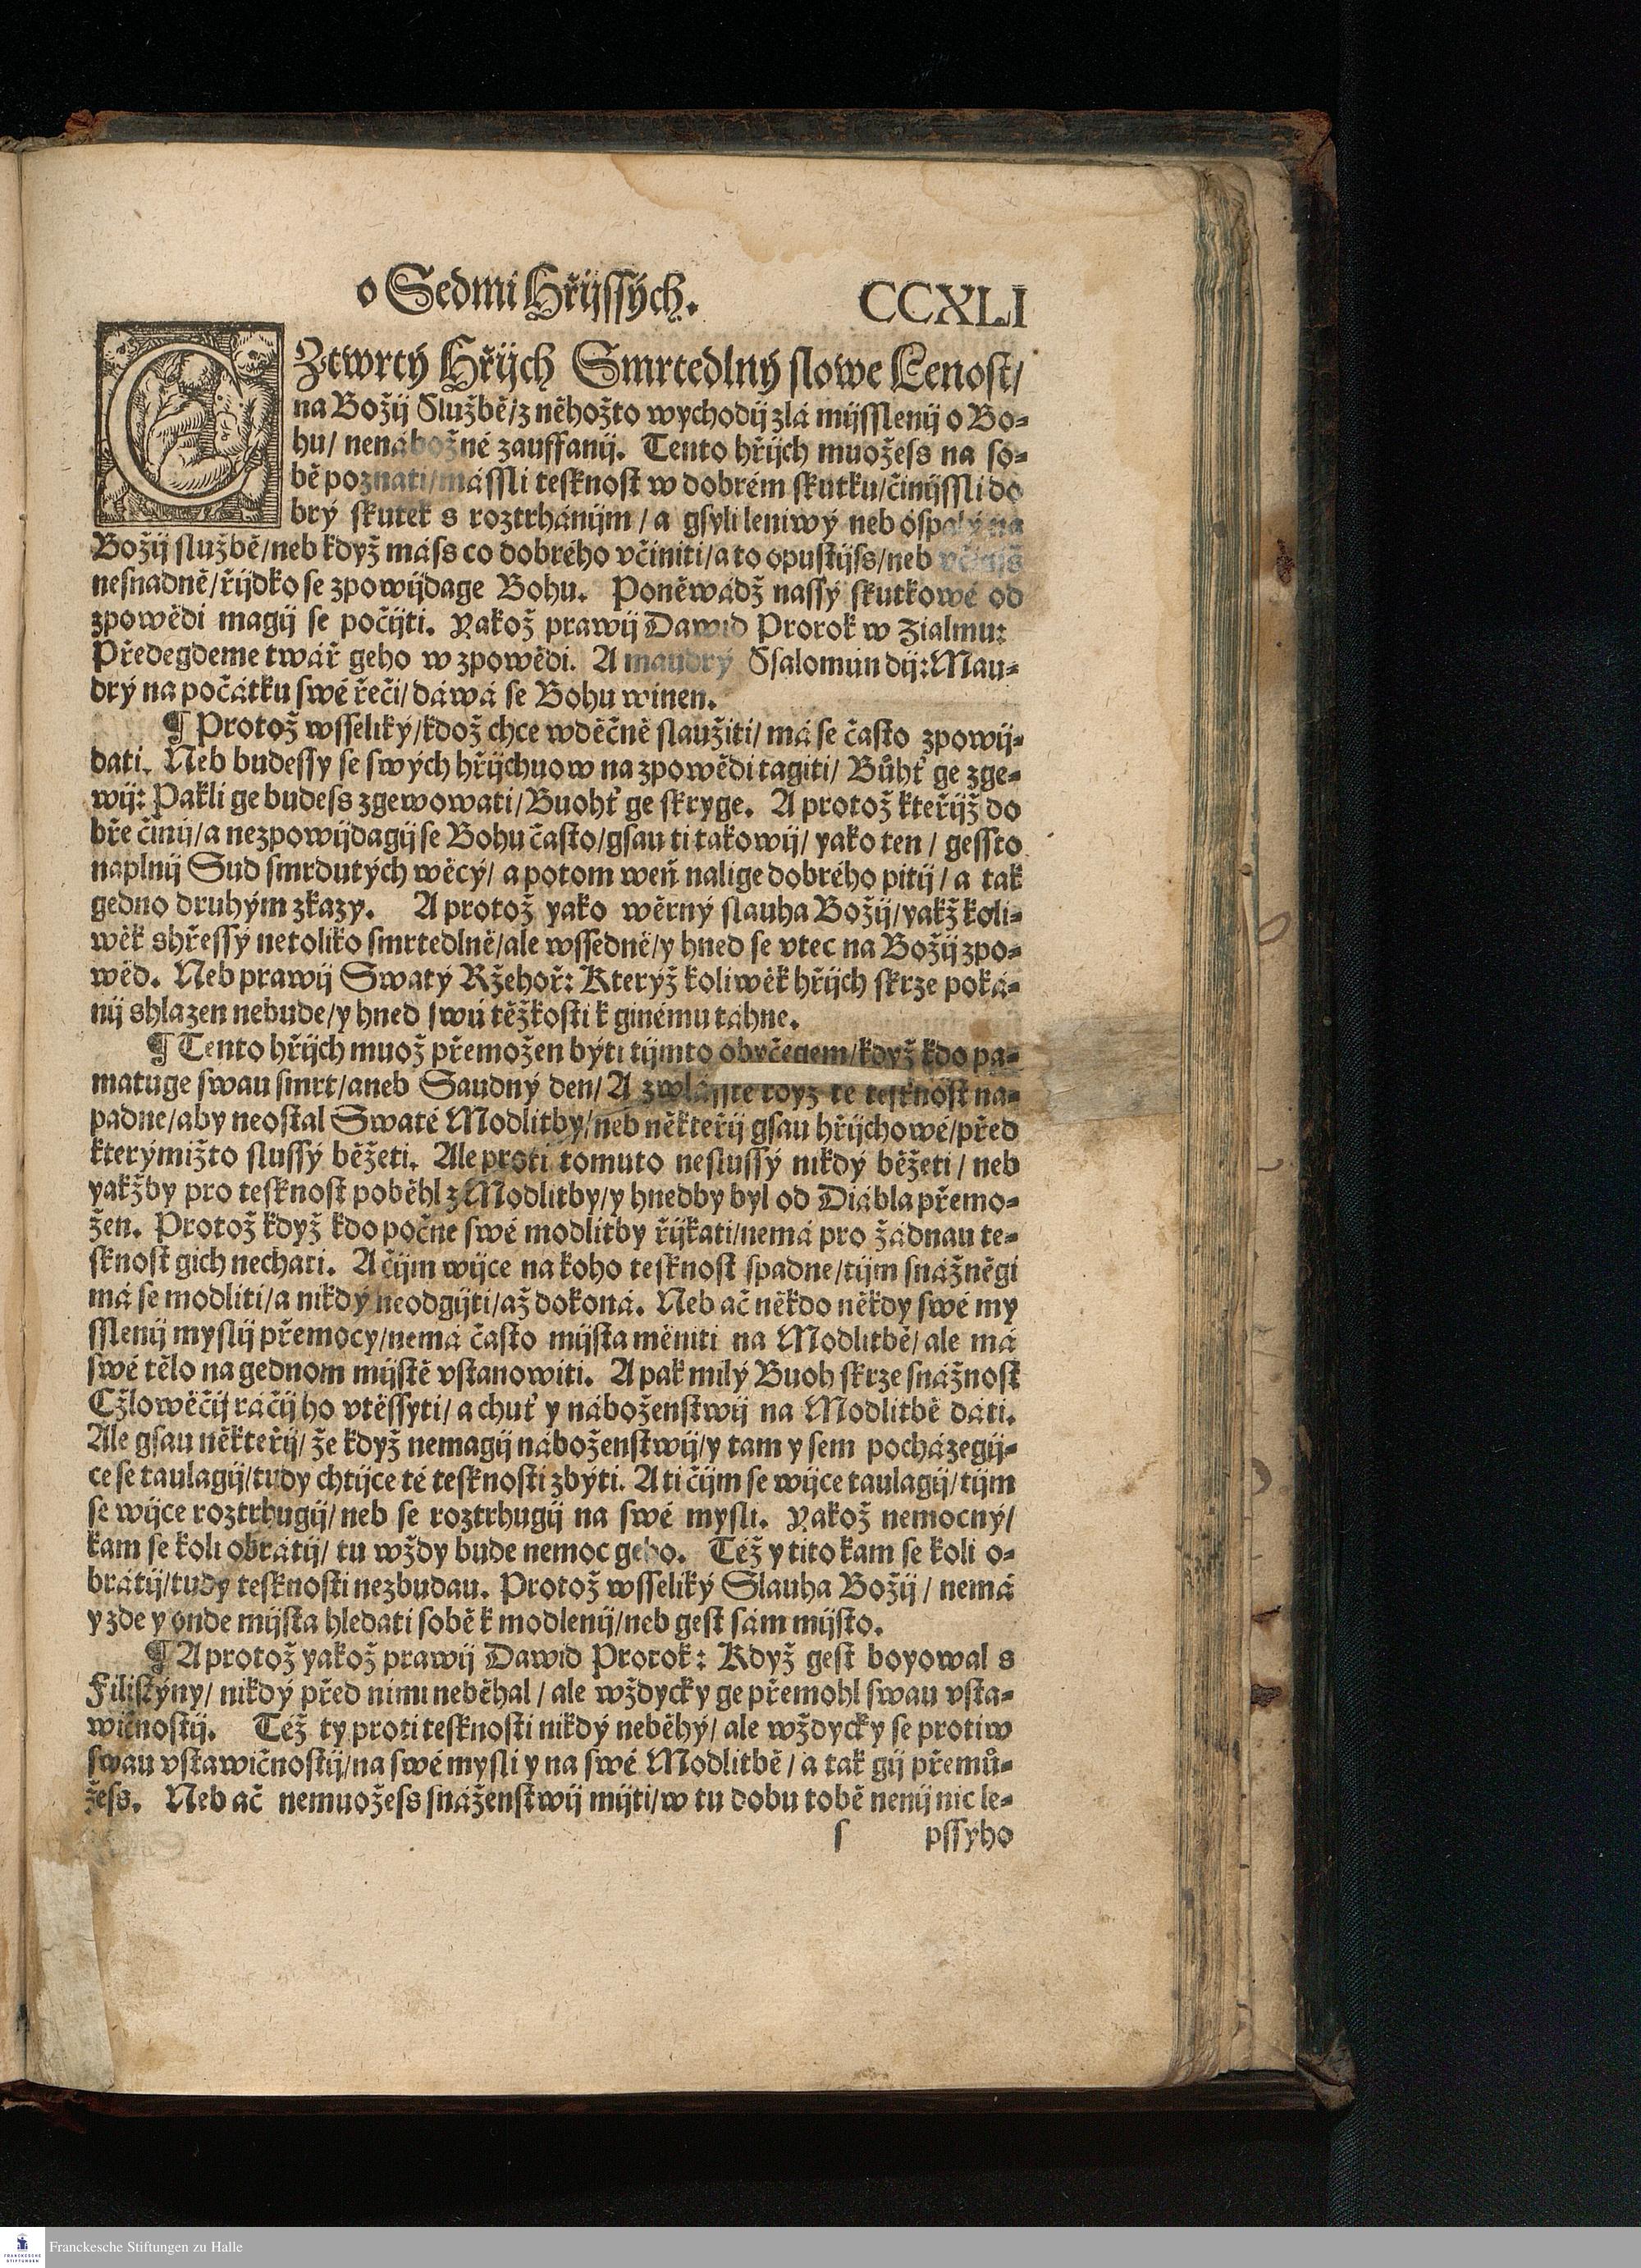 o Sedmi Hřijssých.
CCXLI
CŽtwrtý Hřijch Smrtedlný slowe Lenost/
na Božij Službě/z něhožto wychodij zlá mijsslenij o Bo-
hu/ nenábožné zauffanij. Tento hřijch muožess na so-
bě poznati/mássli teskností w dobrém skutku/činijssli do
brý skutek s roztrhánijm/a gsyli leniwý neb ospalý na
Božij službě/neb když máss co dobrého včiniti/a to opustijss/neb
nesnadně/řijdko se zpowijdage Bohu. Poněwádž nassý skutkowé od
zpowědi magij se počijti. Yakož prawij Dawid Prorok w Žialmu:
Předegdeme twář geho w zpowědi. A maudrý Ssalomún dij: Mau-
drý na počátku swé řeči/dáwá se Bohu winen.
¶ Protož wsseliký/kdož chce wděčně slaužiti/má se často zpowij-
dati. Neb budessy se swých hřijchuow na zpowědi tagiti/ Bůhť ge zge-
wij: Pakli ge budess zgewowati/Buohť ge skryge. A protož kteřijž do
bře činij/a nezpowijdagij se Bohu často/gsau ti takowij/yako ten/gessto
naplnij Sud smrdutých wěcý/a potom weň nalige dobrého pitij/a tak
gedno druhým zkazy. A protož yako wěrný slauha Božij/yakž koli-
wěk shřessý netoliko smrtedlně/ale wssedně/y hned se vtec na Božij zpo-
wěd. Neb prawij Swatý Ržehoř: Kterýž koliwěk hřijch skrze poká-
nij shlazen nebude/y hned swú těžkosti k ginému táhne.
¶ Tento hřijch muož přemožen býti tijmto obyčegem/když kdo pa-
matuge swau smrt/aneb Saudný den/A zwlásste když te tesknost na-
padne/aby neostal Swaté Modlitby/neb někteřij gsau hřijchowé/před
kterýmižto slussý běžeti. Ale proti tomuto neslussý nikdý běžeti/neb
yakžby pro tesknost poběhl z Modlitby/y hnedby byl od Diábla přemo-
žen. Protož když kdo počne swé modlitby řijkati/nemá pro žádnau te-
sknost gich nechati. A čijm wijce na koho tesknost spadne/tijm snážněgi
má se modliti/a nikdý neodgijti/až dokoná. Neb ač někdo někdy swé my
sslenij myslij přemocy/nemá často mijsta měniti na Modlitbě/ale má
swé tělo na gednom mijstě vstanowiti. A pak milý Buoh skrze snážnost
Cžlowěčij ráčij ho vtěssyti/a chuť y náboženstwij na Modlitbě dáti.
Ale gsau někteřij/že když nemagij náboženstwij/y tam y sem pocházegij-
ce se taulagij/tudy chtijce té tesknosti zbýti. A ti čijm se wijce taulagij/tijm
se wijce roztrhugij/neb se roztrhugij na swé mysli. Yakož nemocný/
kam se koli obrátij/tu wždy bude nemoc geho. Též y tito kam se koli o-
brátij/tudy tesknosti nezbudau. Protož wsseliký Slauha Božij/nemá
y zde y onde mijsta hledati sobě k modlenij/neb gest sám mijsto.
¶ A protož yakož prawij Dawid Prorok: Když gest boyowal s
Filistýny/nikdý před nimi neběhal/ale wždycky ge přemohl swau vsta-
wičnostij. Též ty proti tesknosti nikdý neběhý/ale wždycky se protiw
swau vstawičnostij/na swé mysli y na swé Modlitbě/a tak gij přemů-
žess. Neb ač nemuožess snáženstwij mijti/w tu dobu tobě nenij nic le-
s
pssyho
Franckesche Stiftungen zu Halle